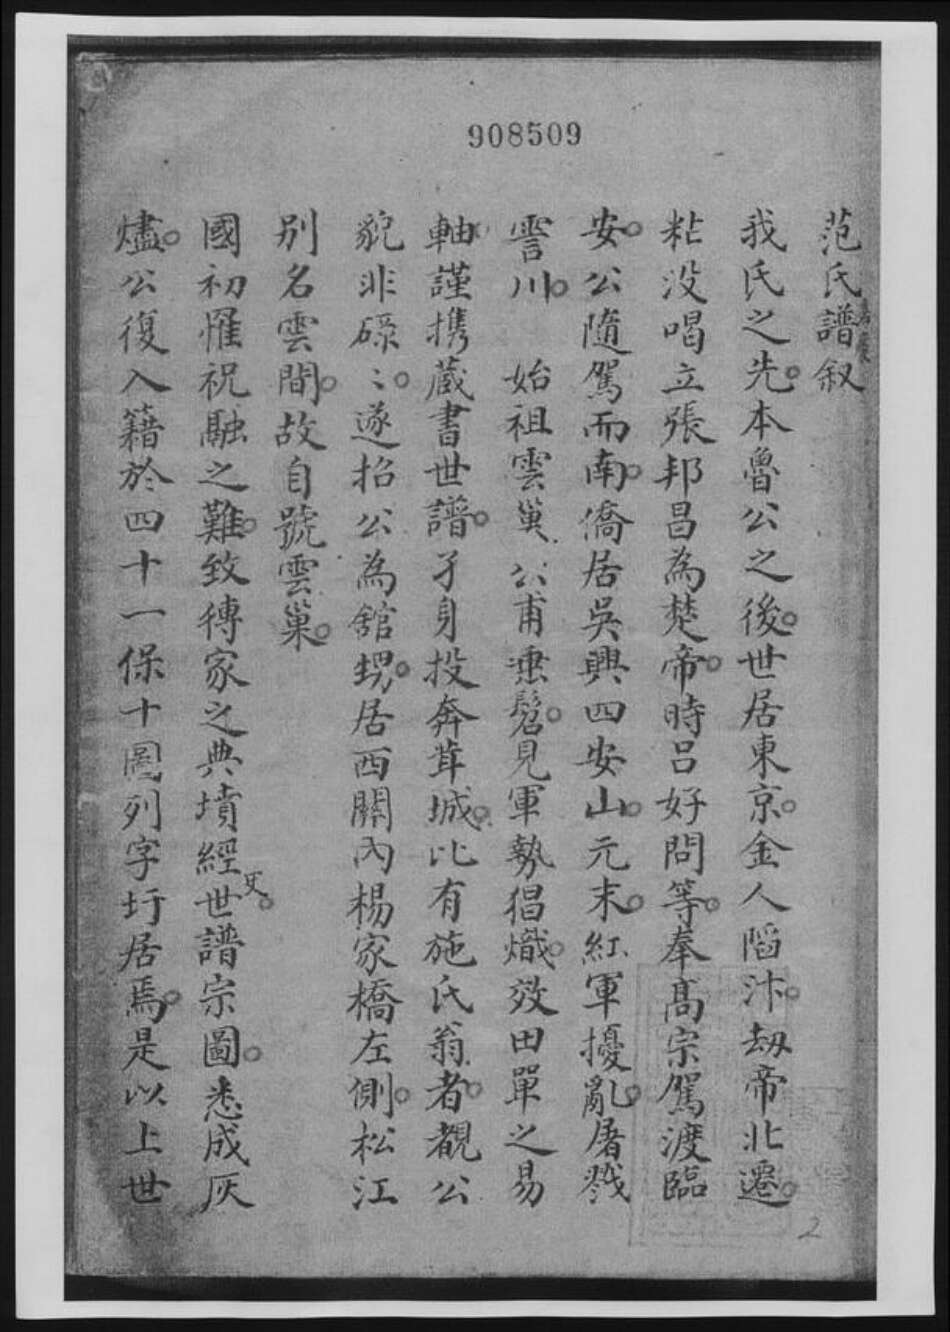 908509
范氏譜叙
我氏之先本魯公之後世居東京金人陷汴刼帝北遷
粘没喝立張邦昌為楚帝時吕好問等奉髙宗駕渡臨
安公隨駕而南僑居吳興四安山元末紅軍擾亂屠戮
霅川 始祖雲巢公甫垂髫見軍勢猖熾效田單之易
軸謹携蔵書世譜孑身投奔茸城比有施氏翁者覩公
貌非碌〻遂招公為舘甥居西關内楊家橋左側松江
别名雲間故自號雲巢
國初罹祝融之難致傳家之典墳經史世譜宗圖悉成灰
燼公復入籍於四十一保十圖列字圩居焉是以上世
2